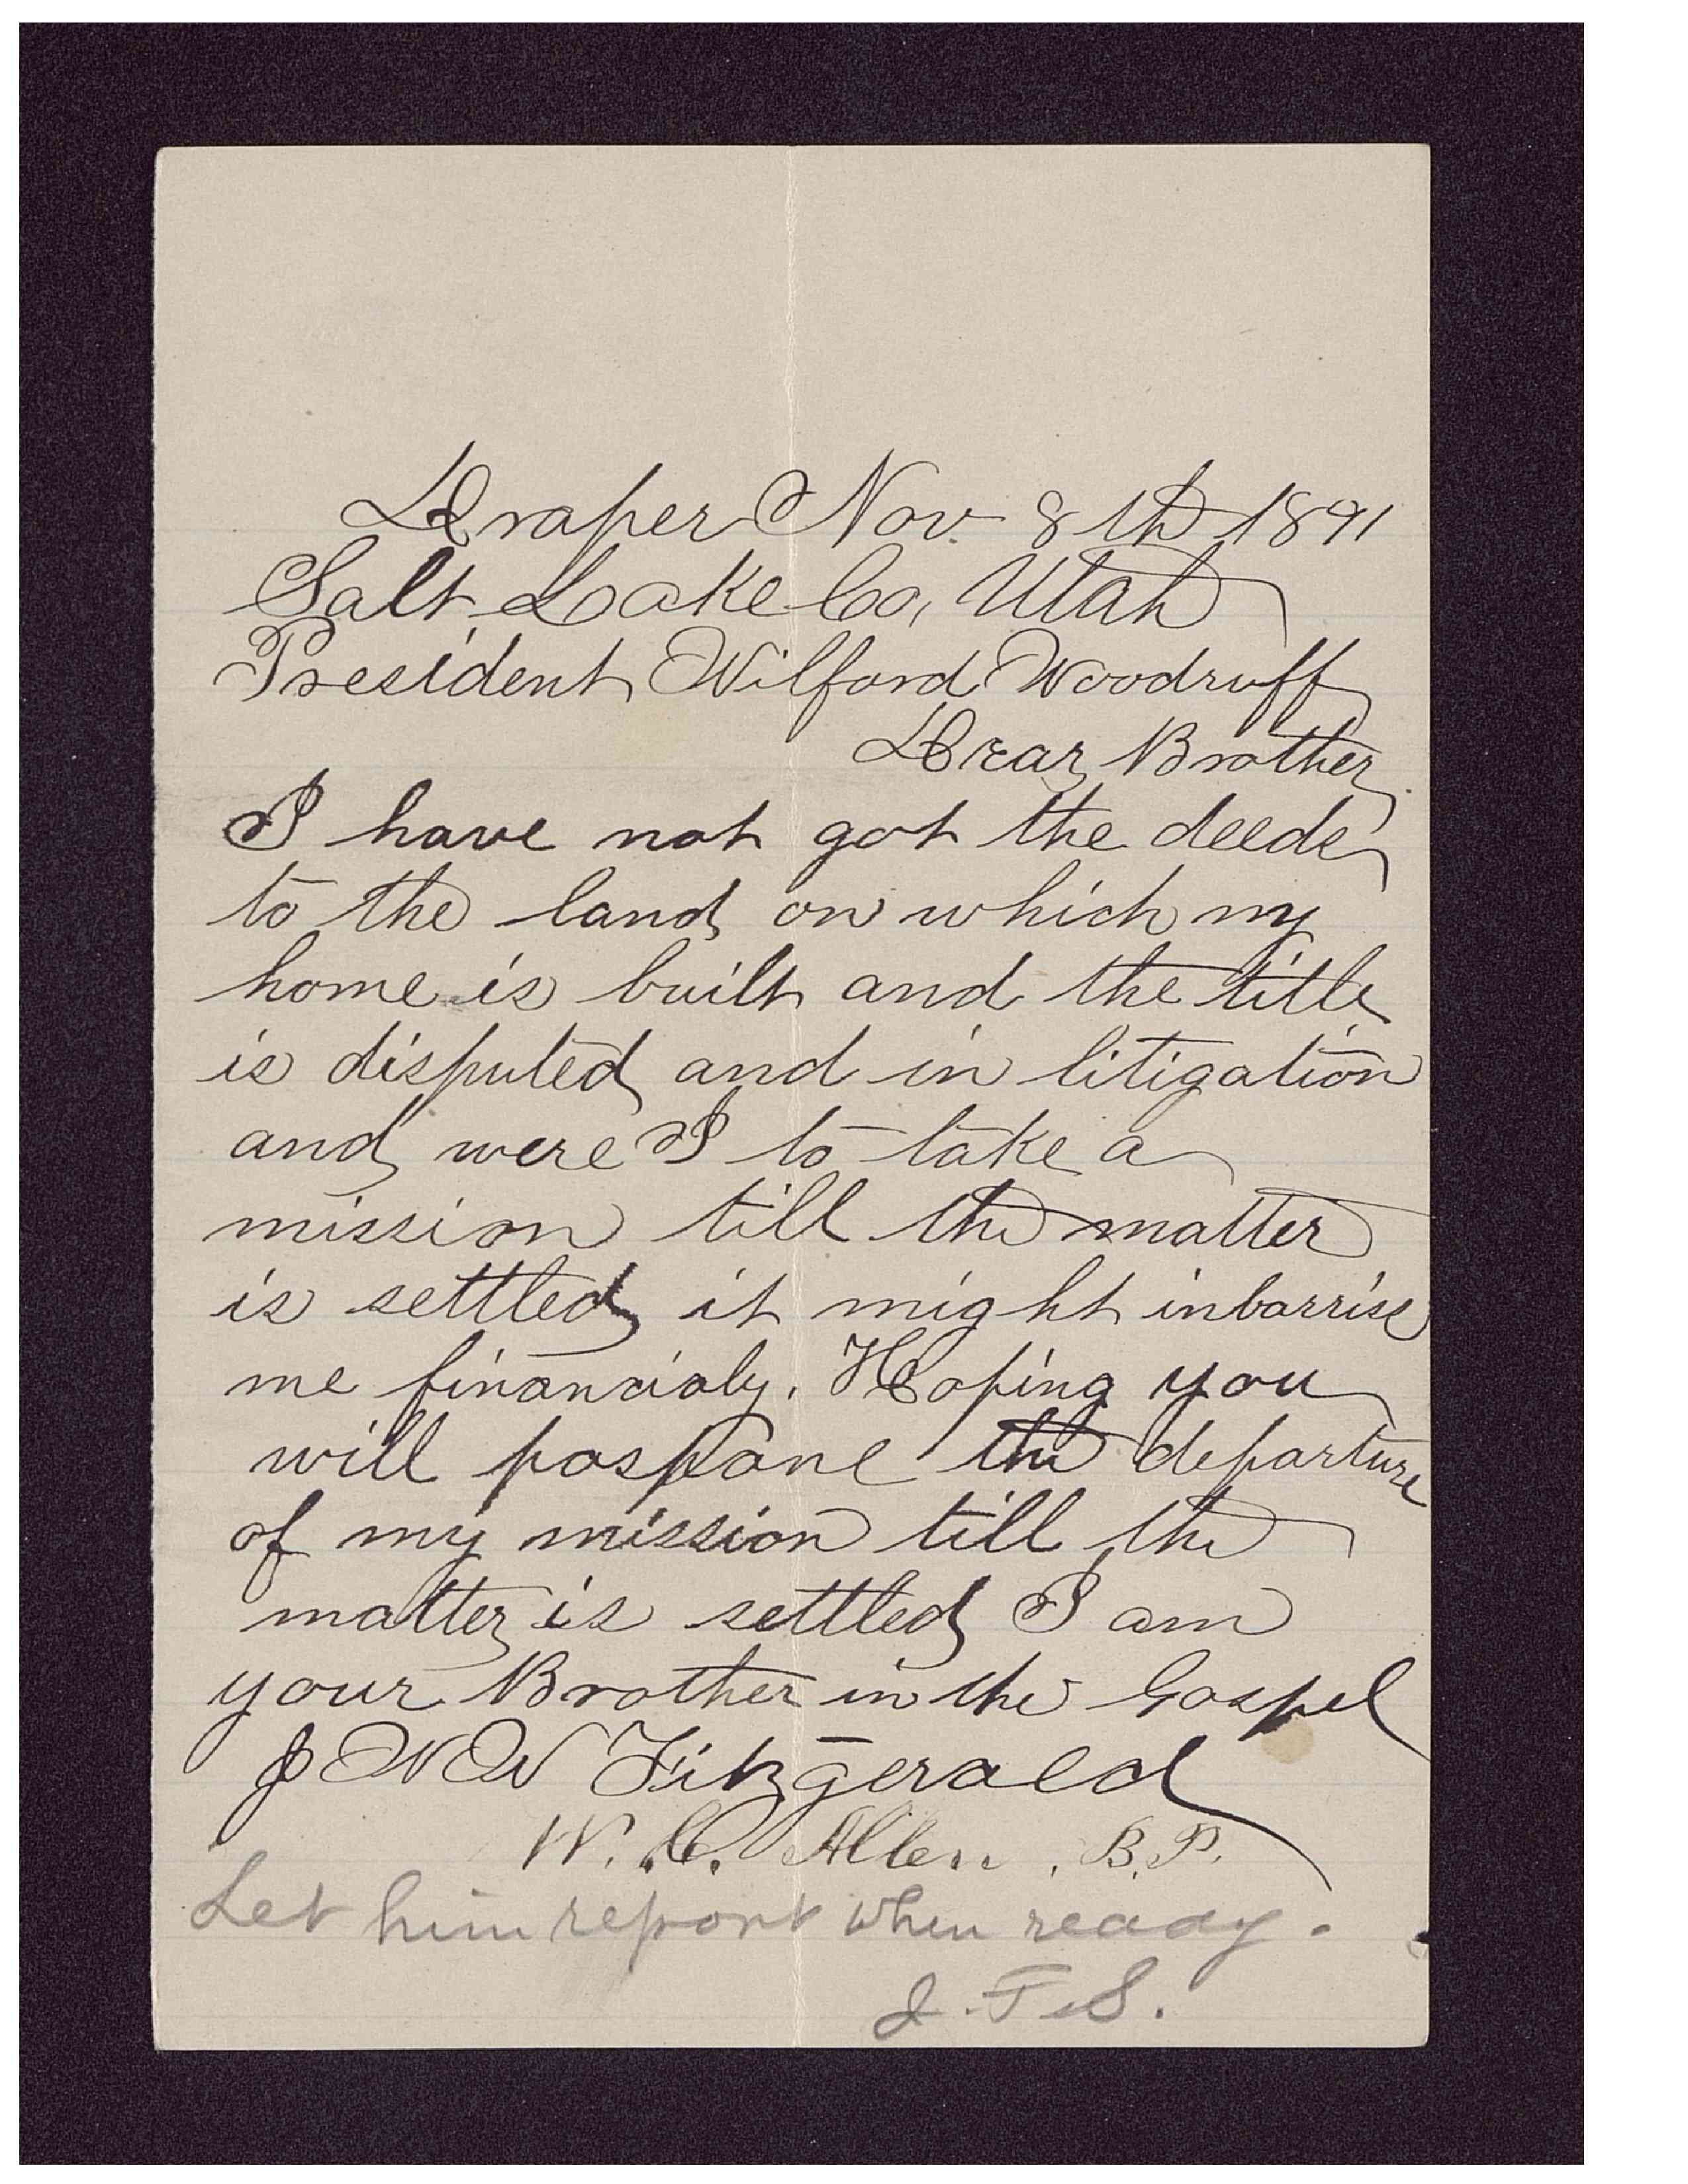 Draper Nov. 8th 1891
Salt Lake Co, Utah
President Wilford Woodruff
Dear Brother
I have not got the deeds
to the land on which my
home is built and the title
is disputed and in litigation
and were I to take a
mission till the matter
is settled it might inbarrise
me financialy. Hoping you
will pospone the departure
of my mission till the
matter is settled I am
your Brother in the Gospel
J W Fitzgerald
W. C. Allen. B.P.
Let him report when ready.
J. F. S.